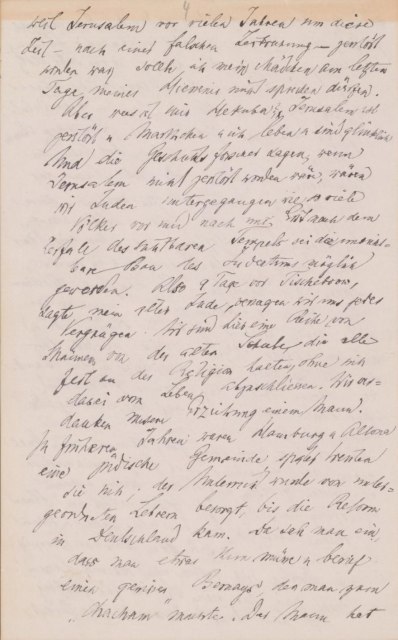 4
weil Jerusalem vor vielen Jahren um diese
Zeit – nach einer falschen Zeitrechnung – zerstört
worden war sollte ich mein Mädchen am letzten
Tage meines Hierseins nicht sprechen dürfen.
Aber was ist mir Hekuba? Jerusalem ist
zerstört u Marthchen u ich leben u sind glücklich
Und die Geschichtsforscher sagen, wenn
Jerusalem nicht zerstört worden wäre, wären
wir Juden untergegangen wie so viele
Völker vor und nach uns. Erst nach dem
Zerfall des sichtbaren Tempels sei der unsicht=
bare Bau des Judentums möglich
geworden. Also 9 Tage vor Tischebeaw,
sagte mein alter Jude, versagen wir uns jedes
Vergnügen. Wir sind hier eine Reihe von
Männern von der alten Schule, die alle
fest an der Religion halten, ohne sich
dabei vom Leben abzuschliessen. Wir ver-
danken unsere Erziehung einem Mann.
In früheren Jahren waren Hamburg u Altona
eine jüdische Gemeinde, später trennten
sie sich; der Unterricht wurde von unter-
geordneten Lehrern besorgt, bis die Reform
in Deutschland kam. Da sah man ein,
dass man etwas thun müsse u berief
einen gewissen Bernays den man zum
„Chacham" machte. Der Mann hat